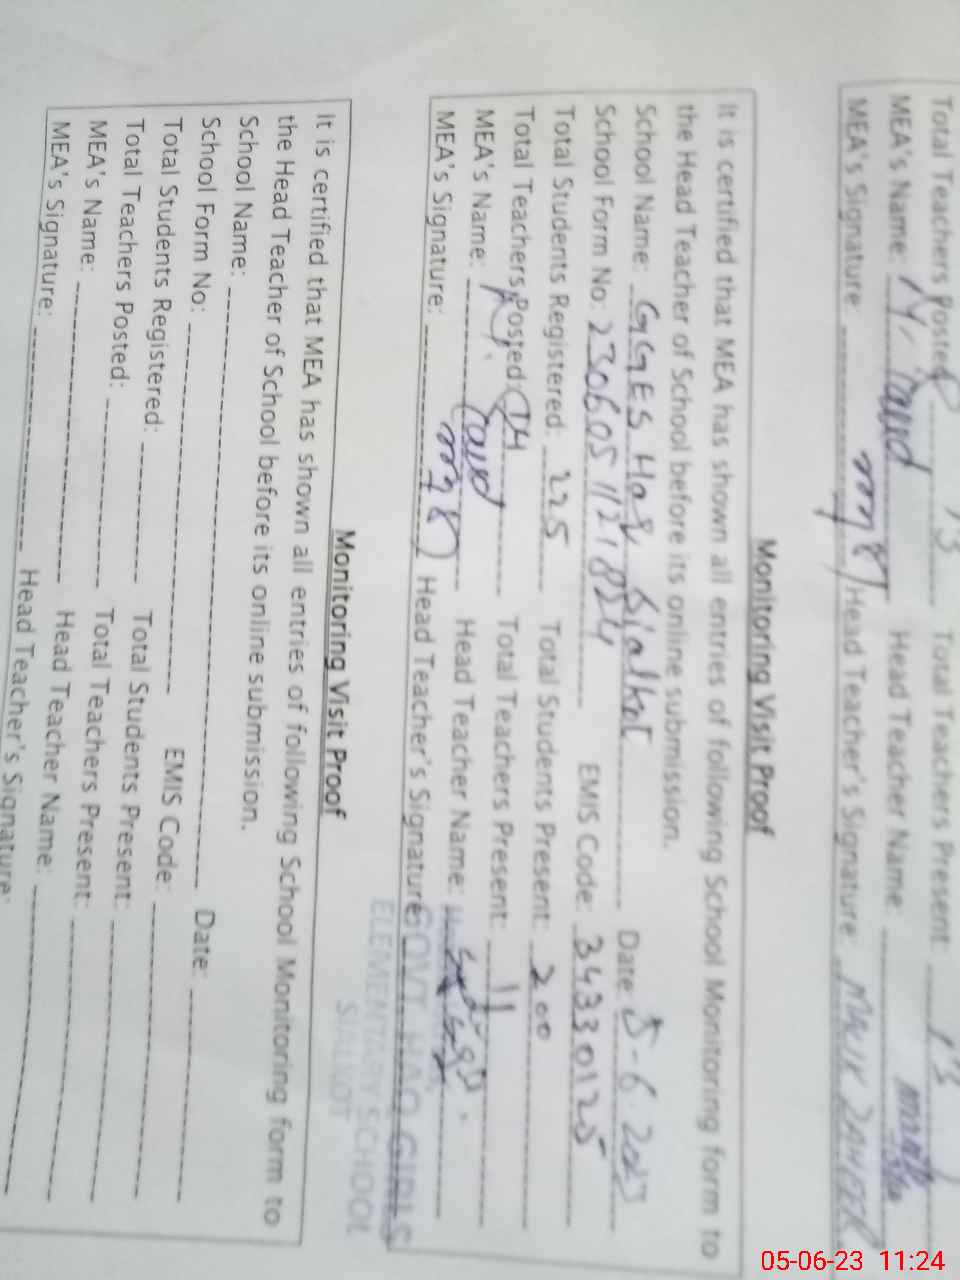 Total Teachers Posted 13 Total Teachers Present: 13
MEA's Name: Head Teacher Name:
MEA's Signature: Head Teacher's Signature:
Monitoring Visit Proof
It is certified that MEA has shown all entries of following School Monitoring form to
the Head Teacher of School before its online submission.
School Name: GGES Haq Sialkot Date: 5-6-2023
School Form No: EMIS Code: 34330125
Total Students Registered: 225 Total Students Present: 200
Total Teachers Posted: 14 Total Teachers Present: 11
MEA's Name: Head Teacher Name:
MEA's Signature: Head Teacher's Signature:
GOVT. HAQ GIRLS
ELEMENTARY SCHOOL
SIALKOT
Monitoring Visit Proof
It is certified that MEA has shown all entries of following School Monitoring form to
the Head Teacher of School before its online submission.
School Name: Date:
School Form No: EMIS Code:
Total Students Registered: Total Students Present:
Total Teachers Posted: Total Teachers Present:
MEA's Name: Head Teacher Name:
MEA's Signature: Head Teacher's Signature:
05-06-23 11:24